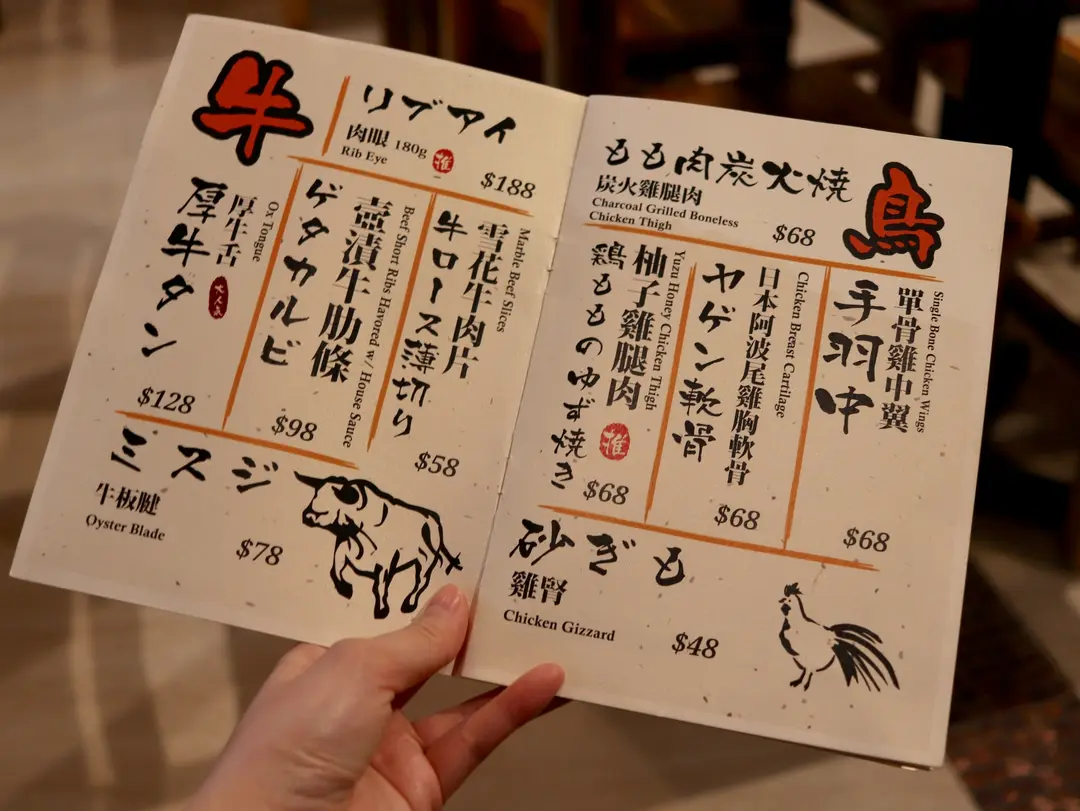 牛
リブアイ
肉眼 180g 推
Rib Eye
$188
厚牛タン
厚牛舌
Ox Tongue
大人気
$128
ゲタカルビ
壺漬牛肋條
Beef Short Ribs Havored w/ House Sauce
$98
牛ロース薄切り
雪花牛肉片
Marble Beef Slices
$58
ミスジ
牛板腱
Oyster Blade
$78
鳥
もも肉炭火焼
炭火雞腿肉
Charcoal Grilled Boneless
Chicken Thigh
$68
鶏もものゆず焼き
柚子雞腿肉
推
Yuzu Honey Chicken Thigh
$68
ヤゲン軟骨
日本阿波尾雞胸軟骨
Chicken Breast Cartilage
$68
手羽中
單骨雞中翼
Single Bone Chicken Wings
$68
砂ぎも
雞腎
Chicken Gizzard
$48